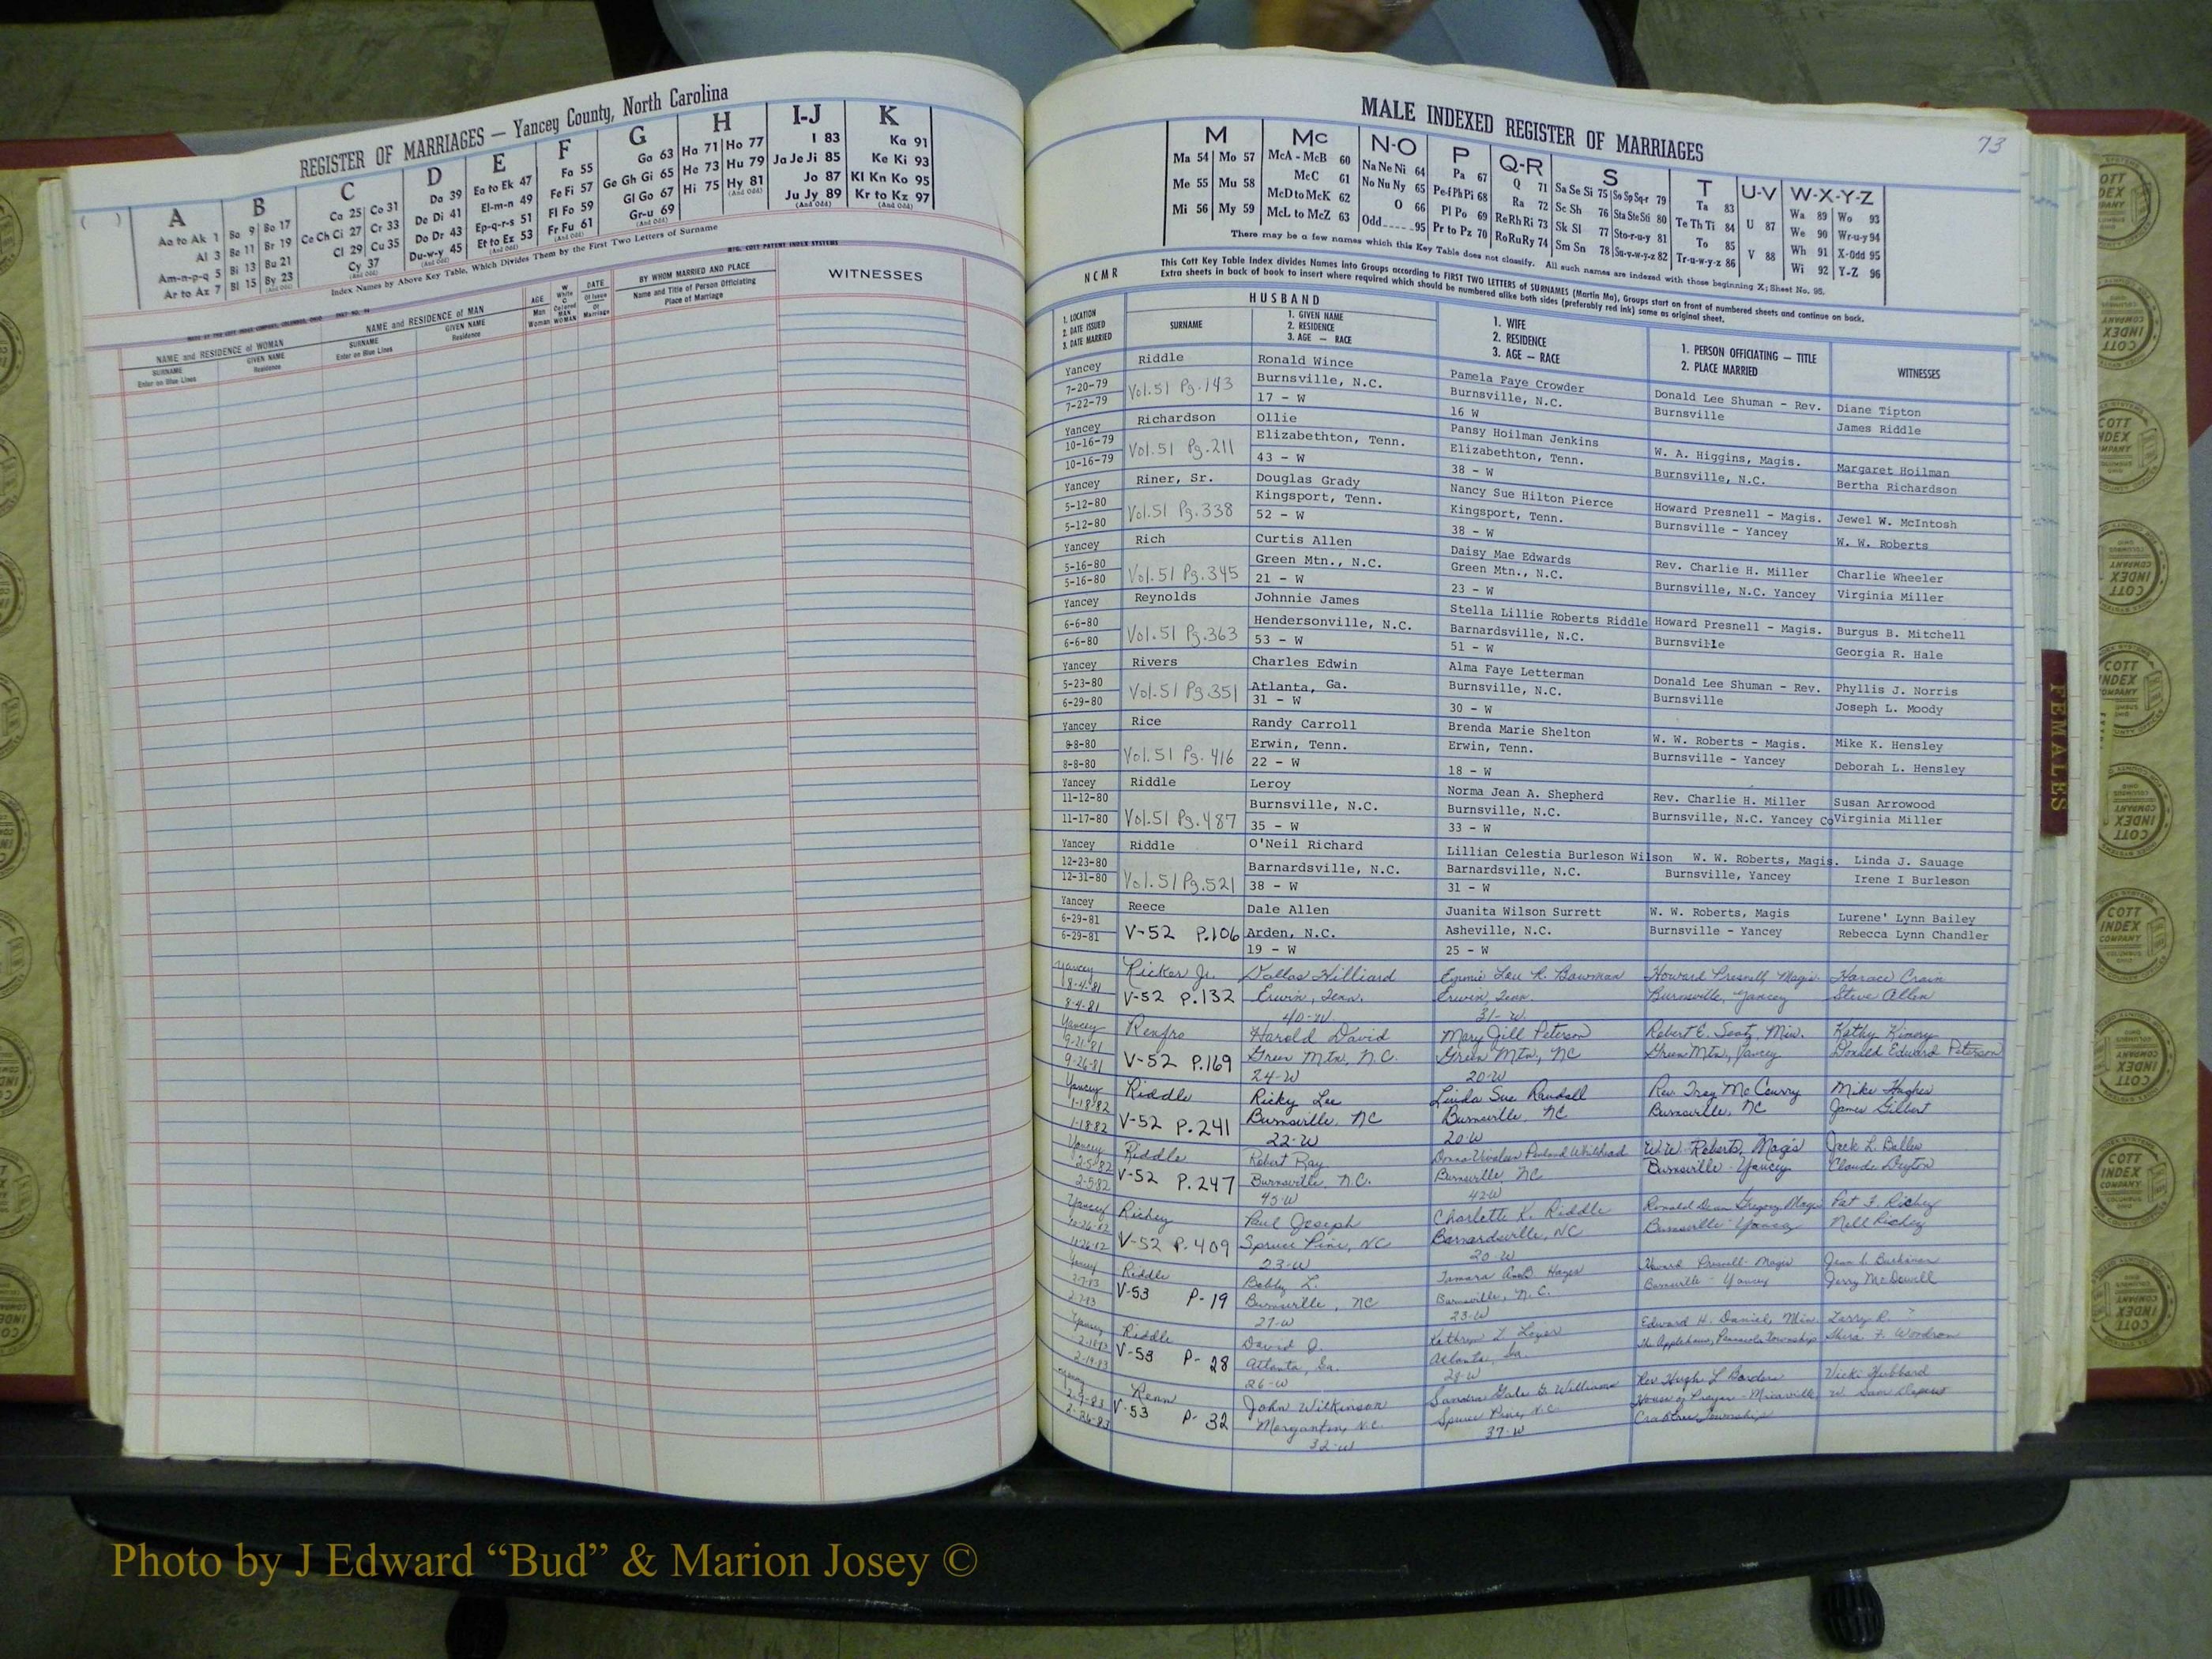 REGISTER OF MARRIAGES — Yancey County, North Carolina
A
Aa to Ak 1
Al 3
Am-n-p-q 5
Ar to Az 7
B
Ba 9 Bo 17
Be 11 Br 19
Bi 13 Bu 21
Bl 15 By 23
(And Odd)
C
Ca 25 Co 31
Ce Ch Ci 27 Cr 33
Cl 29 Cu 35
Cy 37
(And Odd)
D
Da 39
De Di 41
Do Dr 43
Du-w-y 45
(And Odd)
E
Ea to Ek 47
El-m-n 49
Ep-q-r-s 51
Et to Ez 53
(And Odd)
F
Fa 55
Fe Fi 57
Fl Fo 59
Fr Fu 61
(And Odd)
G
Ga 63
Ge Gh Gi 65
Gl Go 67
Gr-u 69
(And Odd)
H
Ha 71 Ho 77
He 73 Hu 79
Hi 75 Hy 81
(And Odd)
I-J
I 83
Ja Je Ji 85
Jo 87
Ju Jy 89
(And Odd)
K
Ka 91
Ke Ki 93
Kl Kn Ko 95
Kr to Kz 97
(And Odd)
Index Names by Above Key Table, Which Divides Them by the First Two Letters of Surname
MFG. COTT PATENT INDEX SYSTEMS
NAME and RESIDENCE of WOMAN
SURNAME
Enter on Blue Lines
GIVEN NAME
Residence
NAME and RESIDENCE of MAN
SURNAME
Enter on Blue Lines
GIVEN NAME
Residence
AGE
Man
Woman
W
White
C
Colored
MAN
WOMAN
DATE
Of Issue
Of
Marriage
BY WHOM MARRIED AND PLACE
Name and Title of Person Officiating
Place of Marriage
WITNESSES
MALE INDEXED REGISTER OF MARRIAGES
73
M
Ma 54 Mo 57
Me 55 Mu 58
Mi 56 My 59
Mc
McA - McB 60
McC 61
McD to McK 62
McL to McZ 63
N-O
Na Ne Ni 64
No Nu Ny 65
O 66
Odd 95
P
Pa 67
Pe-f Ph Pi 68
Pl Po 69
Pr to Pz 70
Q-R
Q 71
Ra 72
Re Rh Ri 73
Ro Ru Ry 74
S
Sa Se Si 75 So Sp Sq-r 79
Sc Sh 76 Sta Ste Sti 80
Sk Sl 77 Sto-r-u-y 81
Sm Sn 78 Su-v-w-y-z 82
T
Ta 83
Te Th Ti 84
To 85
Tr-u-w-y-z 86
U-V
U 87
V 88
W-X-Y-Z
Wa 89 Wo 93
We 90 Wr-u-y 94
Wh 91 X-Odd 95
Wi 92 Y-Z 96
There may be a few names which this Key Table does not classify. All such names are indexed with those beginning X; Sheet No. 95.
NCMR
This Cott Key Table Index divides Names into Groups according to FIRST TWO LETTERS of SURNAMES (Martin Ma), Groups start on front of numbered sheets and continue on back.
Extra sheets in back of book to insert where required which should be numbered alike both sides (preferably red ink) same as original sheet.
1. LOCATION
2. DATE ISSUED
3. DATE MARRIED
HUSBAND
SURNAME
1. GIVEN NAME
2. RESIDENCE
3. AGE — RACE
1. WIFE
2. RESIDENCE
3. AGE — RACE
1. PERSON OFFICIATING — TITLE
2. PLACE MARRIED
WITNESSES
Yancey Riddle Ronald Wince Pamela Faye Crowder Donald Lee Shuman - Rev. Diane Tipton
7-20-79 Vol.51 Pg.143 Burnsville, N.C. Burnsville, N.C. Burnsville James Riddle
7-22-79 17 - W 16 W
Yancey Richardson Ollie Pansy Hoilman Jenkins W. A. Higgins, Magis. Margaret Hoilman
10-16-79 Vol.51 Pg.211 Elizabethton, Tenn. Elizabethton, Tenn. Burnsville, N.C. Bertha Richardson
10-16-79 43 - W 38 - W
Yancey Riner, Sr. Douglas Grady Nancy Sue Hilton Pierce Howard Presnell - Magis. Jewel W. McIntosh
5-12-80 Vol.51 Pg.338 Kingsport, Tenn. Kingsport, Tenn. Burnsville - Yancey W. W. Roberts
5-12-80 52 - W 38 - W
Yancey Rich Curtis Allen Daisy Mae Edwards Rev. Charlie H. Miller Charlie Wheeler
5-16-80 Vol.51 Pg.345 Green Mtn., N.C. Green Mtn., N.C. Burnsville, N.C. Yancey Virginia Miller
5-16-80 21 - W 23 - W
Yancey Reynolds Johnnie James Stella Lillie Roberts Riddle Howard Presnell - Magis. Burgus B. Mitchell
6-6-80 Vol.51 Pg.363 Hendersonville, N.C. Barnardsville, N.C. Burnsville Georgia R. Hale
6-6-80 53 - W 51 - W
Yancey Rivers Charles Edwin Alma Faye Letterman Donald Lee Shuman - Rev. Phyllis J. Norris
5-23-80 Vol.51 Pg.351 Atlanta, Ga. Burnsville, N.C. Burnsville Joseph L. Moody
6-29-80 31 - W 30 - W
Yancey Rice Randy Carroll Brenda Marie Shelton W. W. Roberts - Magis. Mike K. Hensley
8-8-80 Vol.51 Pg.416 Erwin, Tenn. Erwin, Tenn. Burnsville - Yancey Deborah L. Hensley
8-8-80 22 - W 18 - W
Yancey Riddle Leroy Norma Jean A. Shepherd Rev. Charlie H. Miller Susan Arrowood
11-12-80 Vol.51 Pg.487 Burnsville, N.C. Burnsville, N.C. Burnsville, N.C. Yancey Co Virginia Miller
11-17-80 35 - W 33 - W
Yancey Riddle O'Neil Richard Lillian Celestia Burleson Wilson W. W. Roberts, Magis. Linda J. Sauage
12-23-80 Vol.51 Pg.521 Barnardsville, N.C. Barnardsville, N.C. Burnsville, Yancey Irene I Burleson
12-31-80 38 - W 31 - W
Yancey Reece Dale Allen Juanita Wilson Surrett W. W. Roberts, Magis Lurene' Lynn Bailey
6-29-81 V-52 P.106 Arden, N.C. Asheville, N.C. Burnsville - Yancey Rebecca Lynn Chandler
6-29-81 19 - W 25 - W
Yancey Ricker Jr. Dallas Hilliard Emmie Lou R. Bowman Howard Presnell, Magis Horace Crain
8-4-81 V-52 P.132 Erwin, Tenn. Erwin, Tenn. Burnsville, Yancey Steve Allen
8-4-81 40-W 31-W
Yancey Renfro Harold David Mary Jill Peterson Robert E. Seatz, Min. Kathy Kimory
9-21-81 V-52 P.169 Green Mtn, N.C. Green Mtn, NC Green Mtn, Yancey Donald Edward Peterson
9-26-81 24-W 20-W
Yancey Riddle Ricky Lee Linda Sue Randall Rev. Troy McCurry Mike Hughes
1-18-82 V-52 P.241 Burnsville, NC Burnsville, NC Burnsville, NC James Gilbert
1-18-82 22-W 20-W
Yancey Riddle Robert Ray Penland Whitehead W.W. Roberts, Magis Jack L. Ballew
2-5-82 V-52 P.247 Burnsville, N.C. Burnsville, NC Burnsville - Yancey Claude Deyton
2-5-82 45-W 42-W
Yancey Richey Paul Joseph Charlette K. Riddle Ronald Dean Gregory, Magis Pat F. Richey
V-52 P.409 Spruce Pine, NC Barnardsville, NC Burnsville - Yancey Nell Richey
23-W 20-W
Yancey Riddle Bobby L. Tamara Hayes Howard Presnell - Magis Jean L. Buchanan
2-7-83 V-53 P-19 Burnsville, NC Burnsville, N.C. Burnsville - Yancey Jerry McDowell
2-7-83 27-W 23-W
Yancey Riddle David J. Kathryn L. Edward H. Daniel, Min. Larry R.
V-53 P-28 Atlanta, Ga. Atlanta, Ga. Township F. Woodson
2-19-83 26-W 28-W
Yancey Renn John Wilkinson Sandra Gale G. Williams Rev. Hugh L Borders Vicki Hubbard
2-9-83 V-53 P-32 Morganton, N.C. Spruce Pine, N.C. House of Prayer - Micaville W. Sam
2-26-83 32-W 37-W Crabtree Township
FEMALES
COTT
INDEX
COMPANY
Photo by J Edward “Bud” & Marion Josey ©